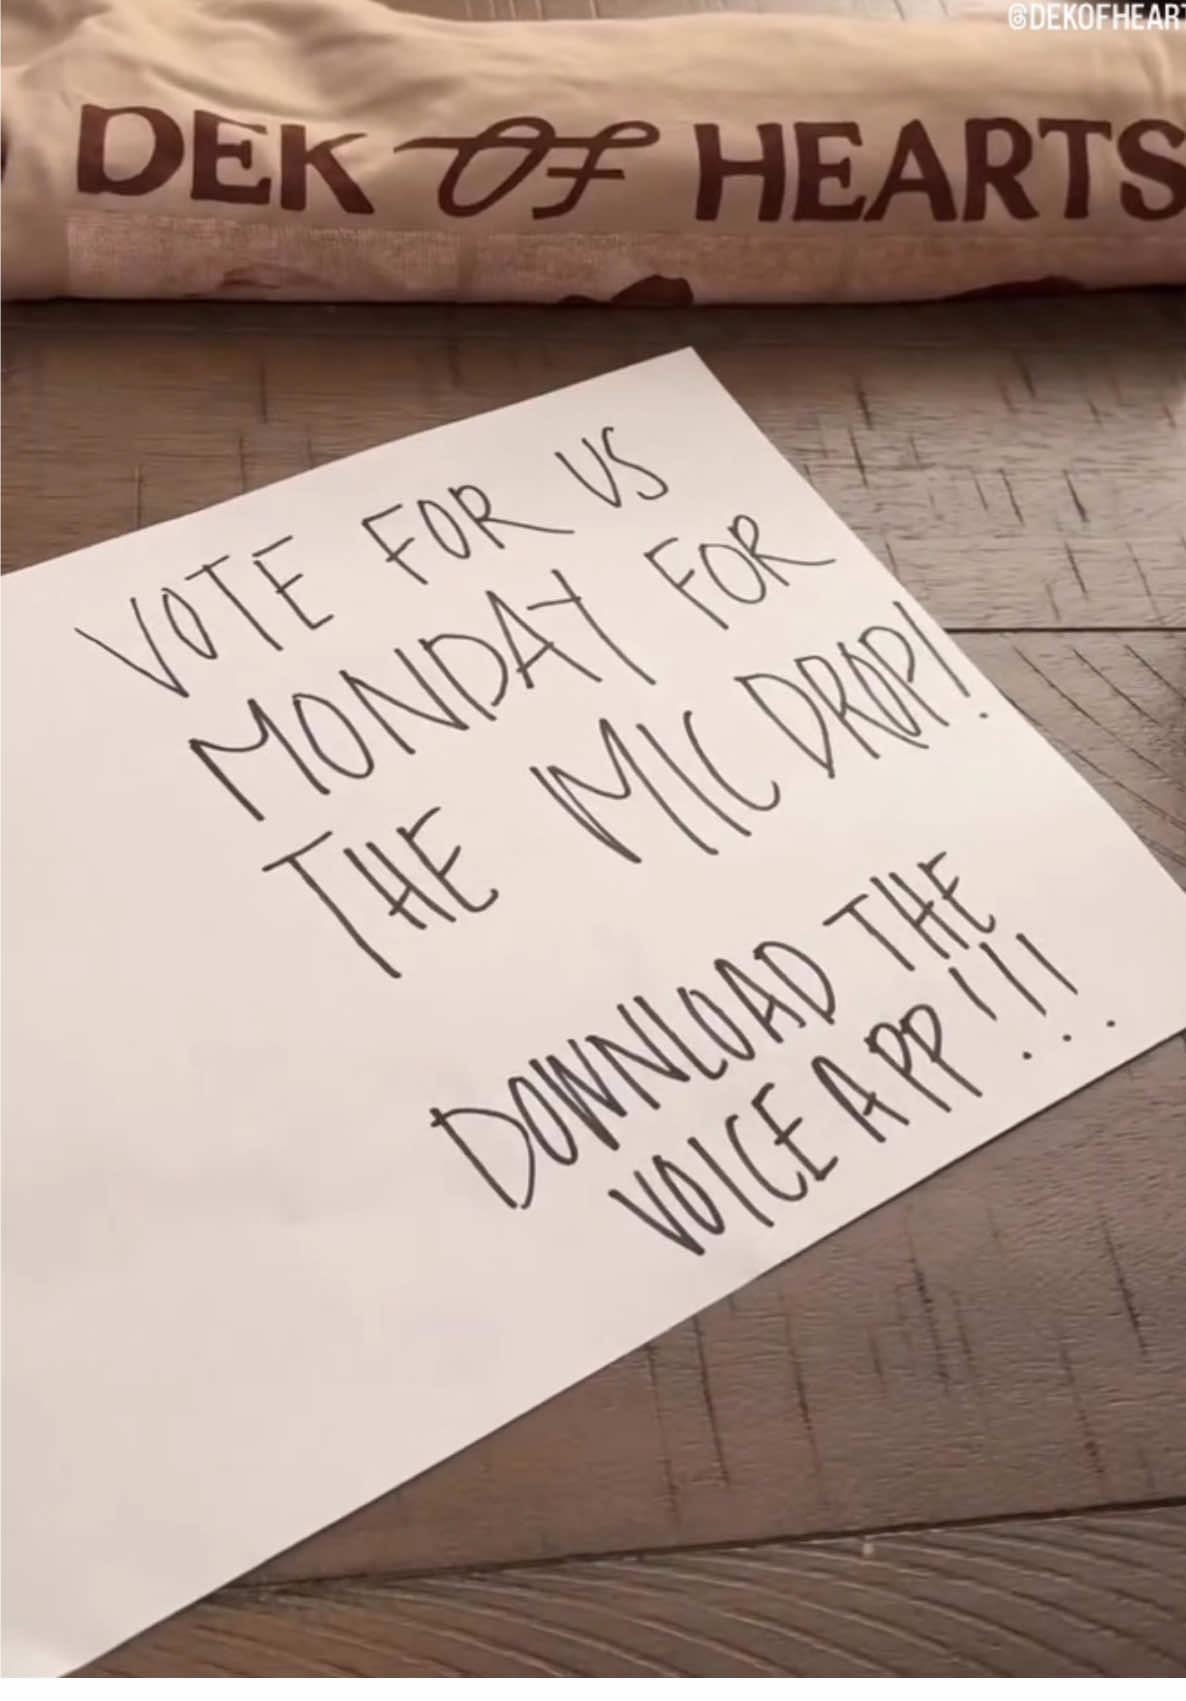 @DEKOFHEART
DEK OF HEARTS
VOTE FOR US
MONDAY FOR
THE MIC DROP!
DOWNLOAD THE
VOICE APP!!!